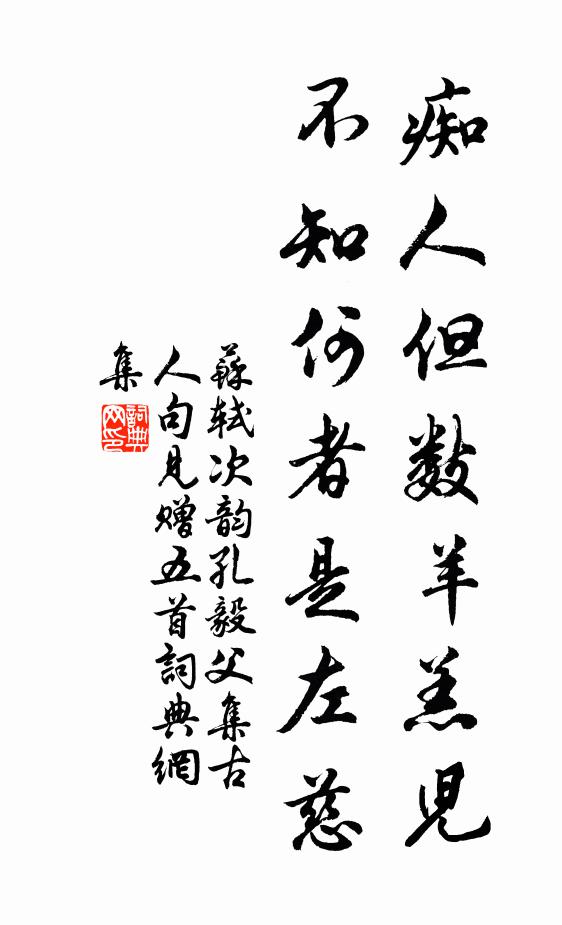 痴人但數羊羔兒
不知何者是左慈
蘇軾次韵孔毅父集古
人句見赠五首詞典網
集
詞典网印